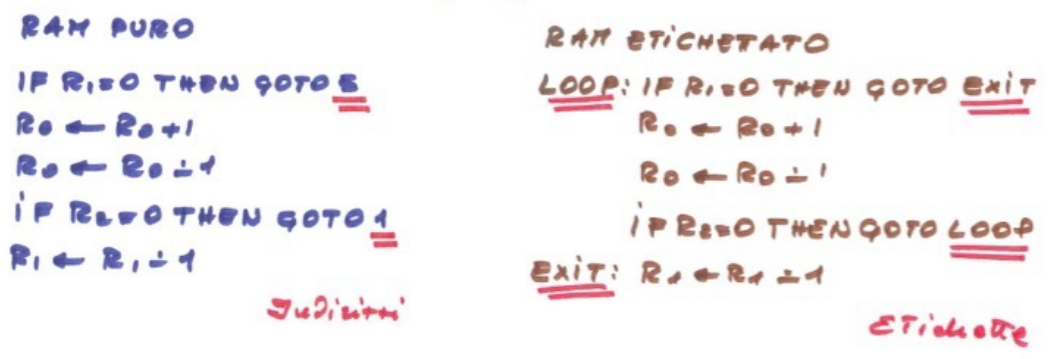 RAM PURO
IF R₁=0 THEN GOTO 5
R₀ ← R₀+1
R₀ ← R₀∸1
IF R₂=0 THEN GOTO 1
R₁ ← R₁∸1
Indirizzi
RAM ETICHETATO
LOOP: IF R₁=0 THEN GOTO EXIT
R₀ ← R₀+1
R₀ ← R₀∸1
IF R₂=0 THEN GOTO LOOP
EXIT: R₁ ← R₁∸1
ETichette